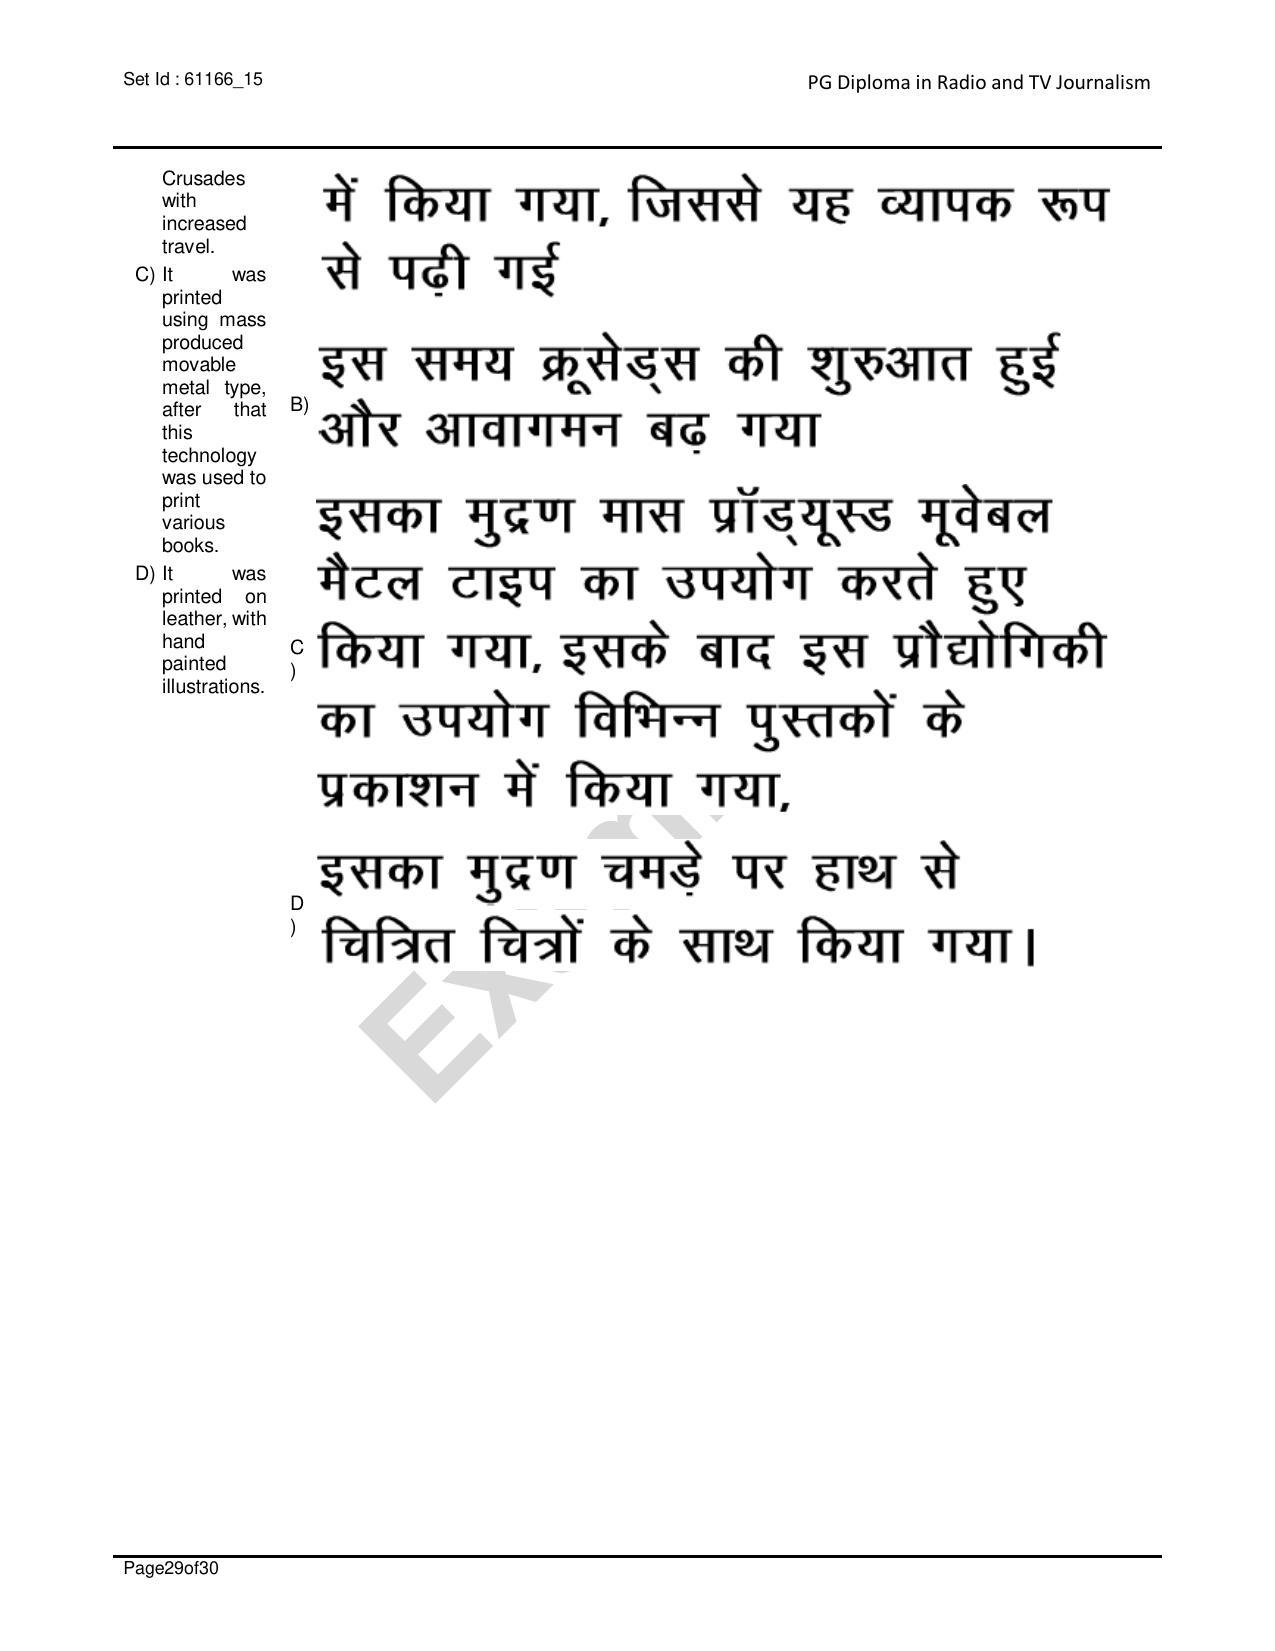 Set Id : 61166_15
PG Diploma in Radio and TV Journalism
Crusades
with
increased
travel.
C) It was
printed
using mass
produced
movable
metal type,
after that
this
technology
was used to
print
various
books.
D) It was
printed on
leather, with
hand
painted
illustrations.
में किया गया, जिससे यह व्यापक रूप
से पढ़ी गई
B)
इस समय क्रूसेड्स की शुरुआत हुई
और आवागमन बढ़ गया
C
)
इसका मुद्रण मास प्रॉड्यूस्ड मूवेबल
मैटल टाइप का उपयोग करते हुए
किया गया, इसके बाद इस प्रौद्योगिकी
का उपयोग विभिन्न पुस्तकों के
प्रकाशन में किया गया,
D
)
इसका मुद्रण चमड़े पर हाथ से
चित्रित चित्रों के साथ किया गया।
Page29of30